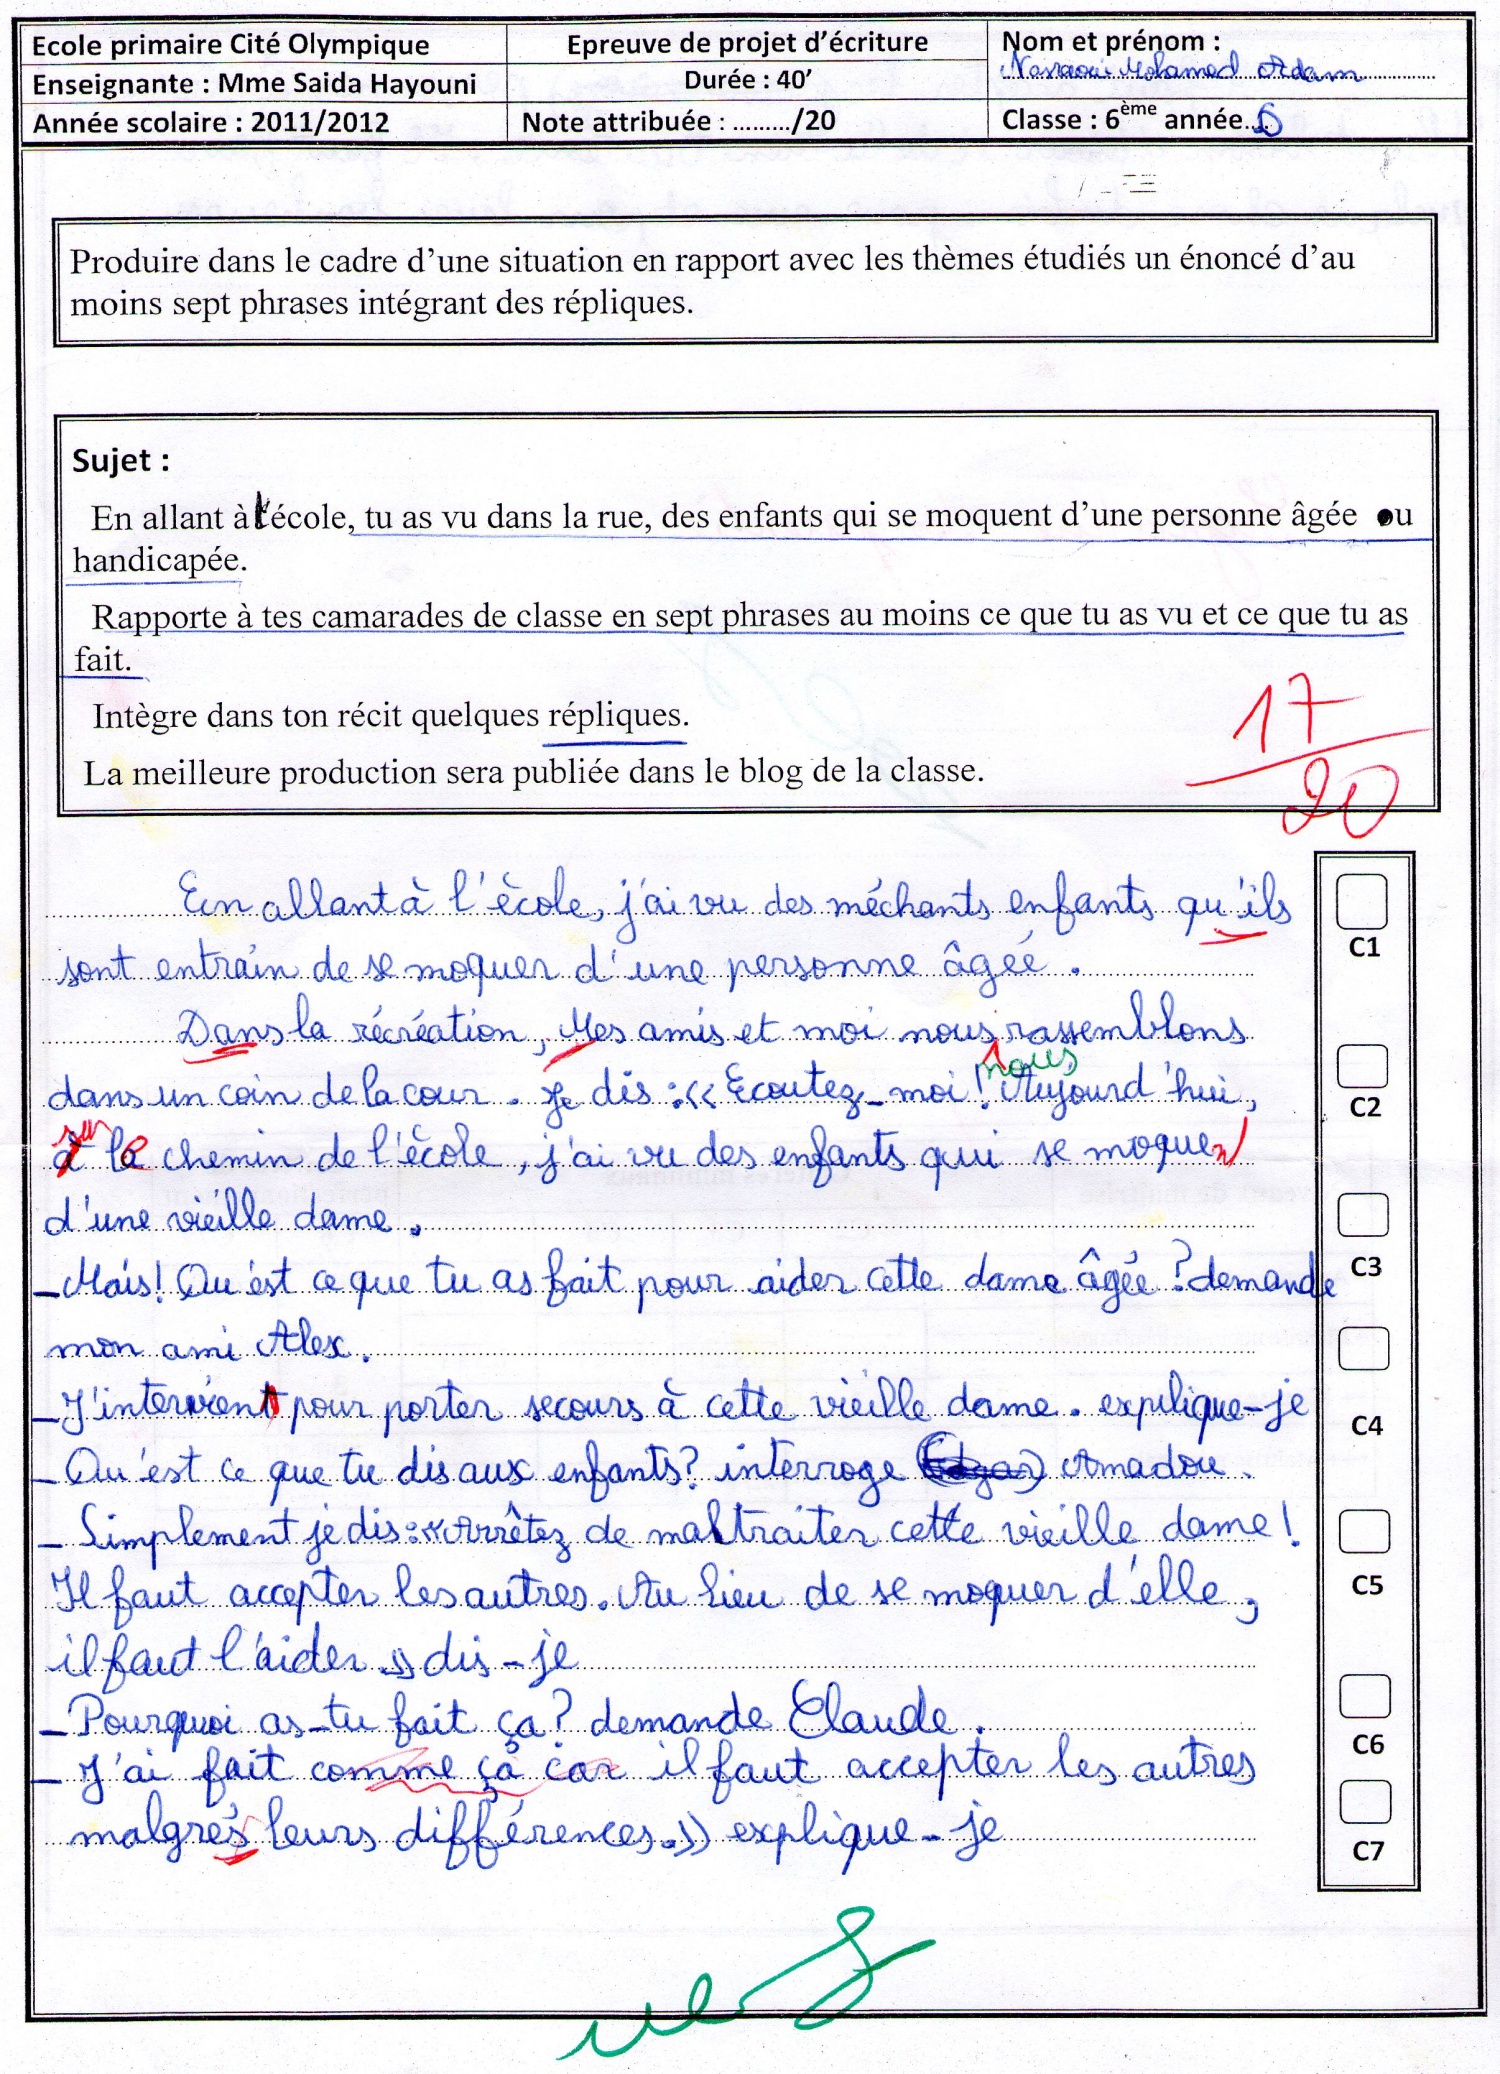 Ecole primaire Cité Olympique
Epreuve de projet d'écriture
Nom et prénom :
Enseignante : Mme Saida Hayouni
Durée : 40'
Mohamed Adam
Année scolaire : 2011/2012
Note attribuée : ........./20
Classe : 6ème année...6
Produire dans le cadre d'une situation en rapport avec les thèmes étudiés un énoncé d'au
moins sept phrases intégrant des répliques.
Sujet :
En allant à l'école, tu as vu dans la rue, des enfants qui se moquent d'une personne âgée ou
handicapée.
Rapporte à tes camarades de classe en sept phrases au moins ce que tu as vu et ce que tu as
fait.
Intègre dans ton récit quelques répliques.
La meilleure production sera publiée dans le blog de la classe.
17/20
En allant à l'école, j'ai vu des méchants enfants qu'ils
sont entrain de se moquer d'une personne âgée.
Dans la récréation, Mes amis et moi nous rassemblons
nous
dans un coin de la cour. Je dis : « Ecoutez-moi ! Aujourd'hui,
sur le chemin de l'école, j'ai vu des enfants qui se moquent
d'une vieille dame.
- Mais ! Qu'est ce que tu as fait pour aider cette dame âgée ? demande
mon ami Alex.
- J'intervient pour porter secours à cette vieille dame. explique-je
- Qu'est ce que tu dis aux enfants ? interroge Amadou.
- Simplement je dis : « Arrêtez de maltraiter cette vieille dame !
Il faut accepter les autres. Au lieu de se moquer d'elle,
il faut l'aider » dis-je
- Pourquoi as-tu fait ça ? demande Claude.
- J'ai fait comme ça car il faut accepter les autres
malgrés leurs différences. » explique-je
C1
C2
C3
C4
C5
C6
C7